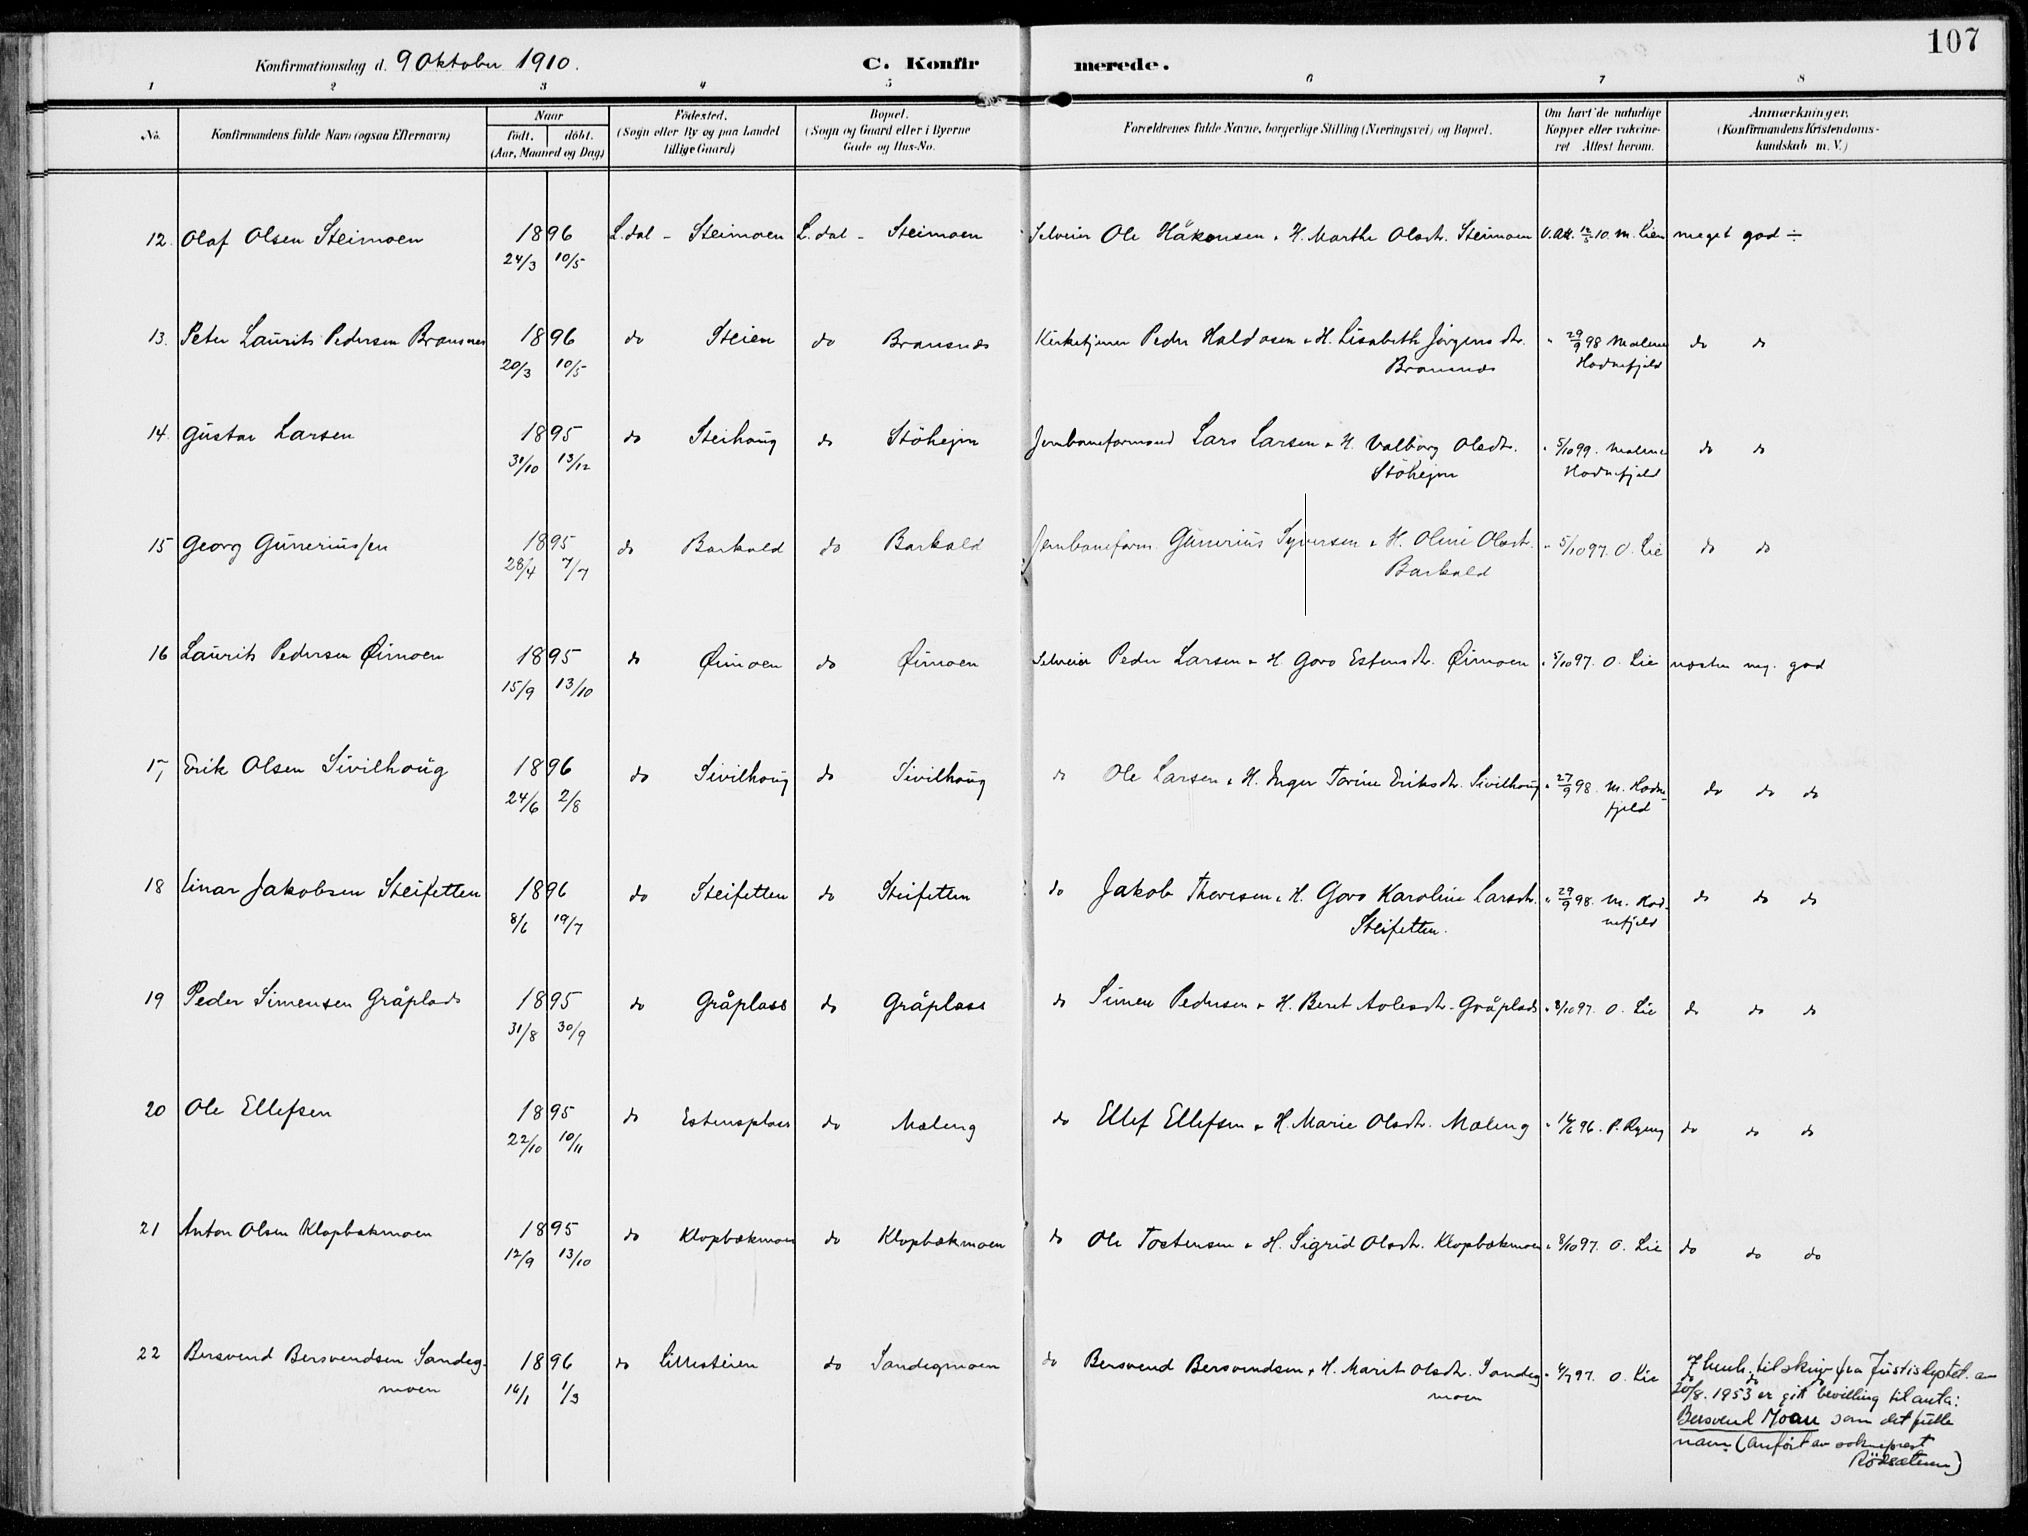 107
Konfirmationsdag d. 9 Oktober 1910. C. Konfirmerede.
1 2 3 4 5 6 7 8
No. Konfirmandens fulde Navn (ogsaa Efternavn) Naar födt. döbt. (Aar, Maaned og Dag) Födested. (Sogn eller By og paa Landet tillige Gaard) Bopæl. (Sogn og Gaard eller i Byerne Gade og Hus-No. Forældrenes fulde Navne, borgerlige Stilling (Næringsvei) og Bopæl. Om havt de naturlige Kopper eller vakcineret Attest herom. Anmærkninger. (Konfirmandens Kristendomskundskab m. V.)
12. Olaf Olsen Steimoen 1896 L.dal - Steimoen L.dal - Steimoen Selveier Ole Håkonsen & H. Marthe Olsdtr. Steimoen V.att. 12/5 10. M. Lien meget god ÷
24/3 10/5
13. Peter Laurits Pedersen Bransnes 1896 do Steien do Bransnæs Kirketjener Peder Haldosen & H. Lisabeth Jörgensdtr. " 29/9 98 Malene do do
20/3 10/5 Bransnæs Hodnefjeld
14. Gustav Larsen 1895 do Steihoug do Stöhejm Jernbaneformand Lars Larsen & H. Valborg Olsdtr. " 5/10 99. Malene do do
31/10 13/12 Stöhejm Hodnefjeld
15 Georg Gunerius/en 1895 do Barkald do Barkald Jernbaneform. Gunerius Syversen & H. Oline Olsdtr. " 5/10 97. O. Lie do do
28/4 7/7 Barkald
16 Laurits Pedersen Øimoen 1895 do Øimoen do Øimoen Selveier Peder Larsen & H. Goro Estensdtr. Øimoen " 5/10 97. O. Lie næsten meg. god
15/9 13/10
17 Erik Olsen Sivilhoug 1896 do Sivilhoug do Sivilhoug do Ole Larsen & H. Inger Torine Eriksdtr. Sivilhoug " 27/9 98. M. Hodne- do do do
24/6 2/8 fjeld
18 Einar Jakobsen Steifetten 1896 do Steifetten do Steifetten do Jakob Thoresen & H. Goro Karoline Larsdtr. " 29/9 98. M. Hod- do do do
8/6 19/7 Steifetten. nefjeld
19 Peder Simensen Gråplads 1895 do Gråplass do Gråplass do Simen Pedersen & H. Beret Avlesdtr. Gråplads " 8/10 97. O. Lie do do do
31/8 30/9
20 Ole Ellefsen 1895 do Estensplass do Mæleng do Ellef Ellefsen & H. Marie Olsdtr. Mæleng " 96. P. Ryeng do do do
22/10 10/11
21 Anton Olsen Klopbækmoen 1895 do Klopbækmoen do Klopbækmoen do Ole Tostensen & H. Sigrid Olsdtr. Klopbækmoen " 8/10 97. O. Lie do do do
12/9 13/10
22 Bersvend Bersvendsen Sandeg- 1896 do Lillesteien do Sandegmoen do Bersvend Bersvendsen & H. Marit Olsdtr. Sandeg " 97. O. Lie do do do
moen 14/1 1/3 moen
I henh. til skriv fra Justisdeptet. av
20/8. 1953 er gitt bevilling til anta:
Bersvend Moan som det fulle
navn (anført av sokneprest
Rödsæteren)